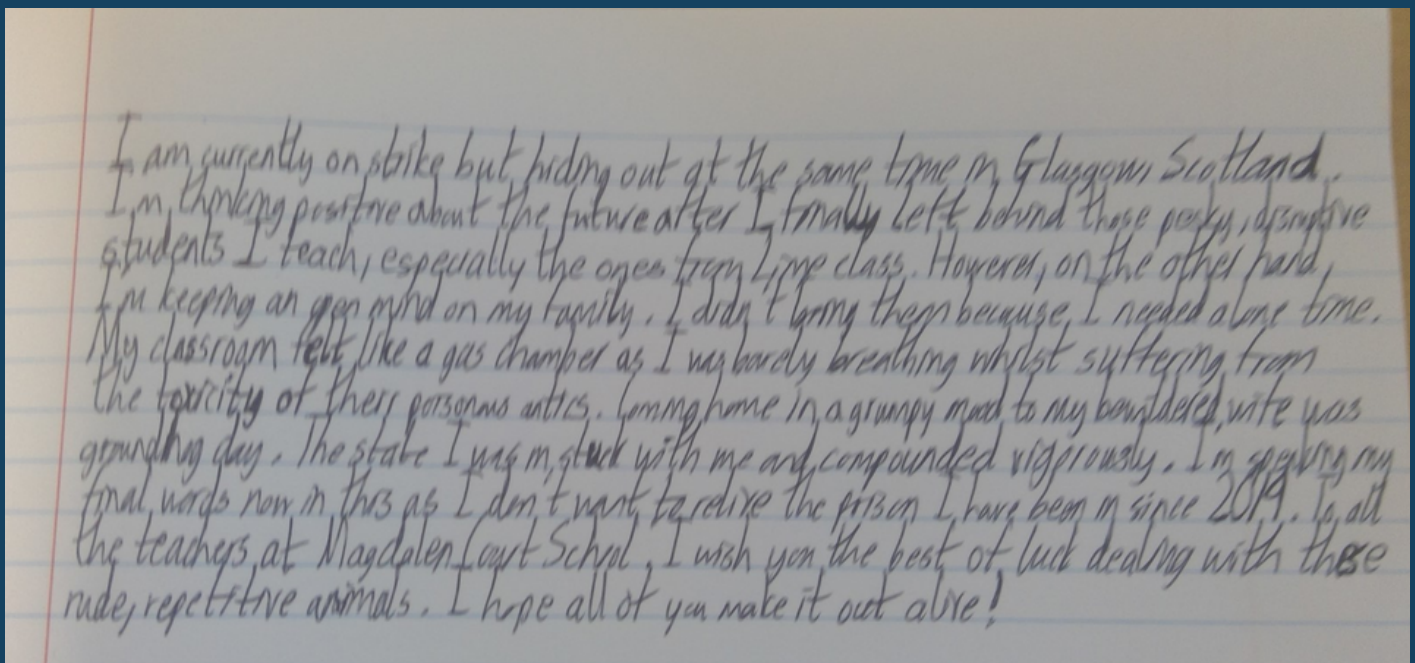 I am currently on strike but hiding out at the same time in Glasgow, Scotland.
I'm thinking positive about the future after I finally left behind those pesky, disruptive
students I teach, especially the ones from Lime class. However, on the other hand,
I'm keeping an open mind on my family. I didn't bring them because I needed alone time.
My classroom felt like a gas chamber as I was barely breathing whilst suffering from
the toxicity of their poisonous antics. Coming home in a grumpy mood to my bewildered wife was
grounding day. The state I was in, stuck with me and compounded vigorously. I'm speaking my
final words now in this as I don't want to relive the prison I have been in since 2019. To all
the teachers at Magdalen Court School, I wish you the best of luck dealing with these
rude, repetitive animals. I hope all of you make it out alive!